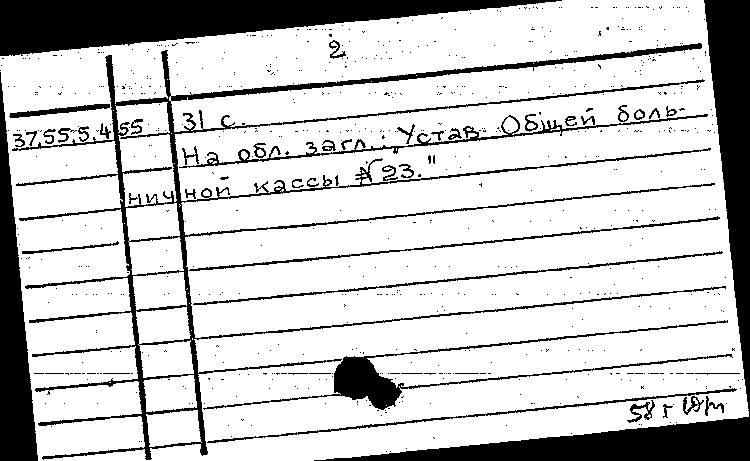 2
37.55.5.4 55 31 с.
На обл. загл.: „Устав Общей боль-
ничной кассы № 23."
58 г